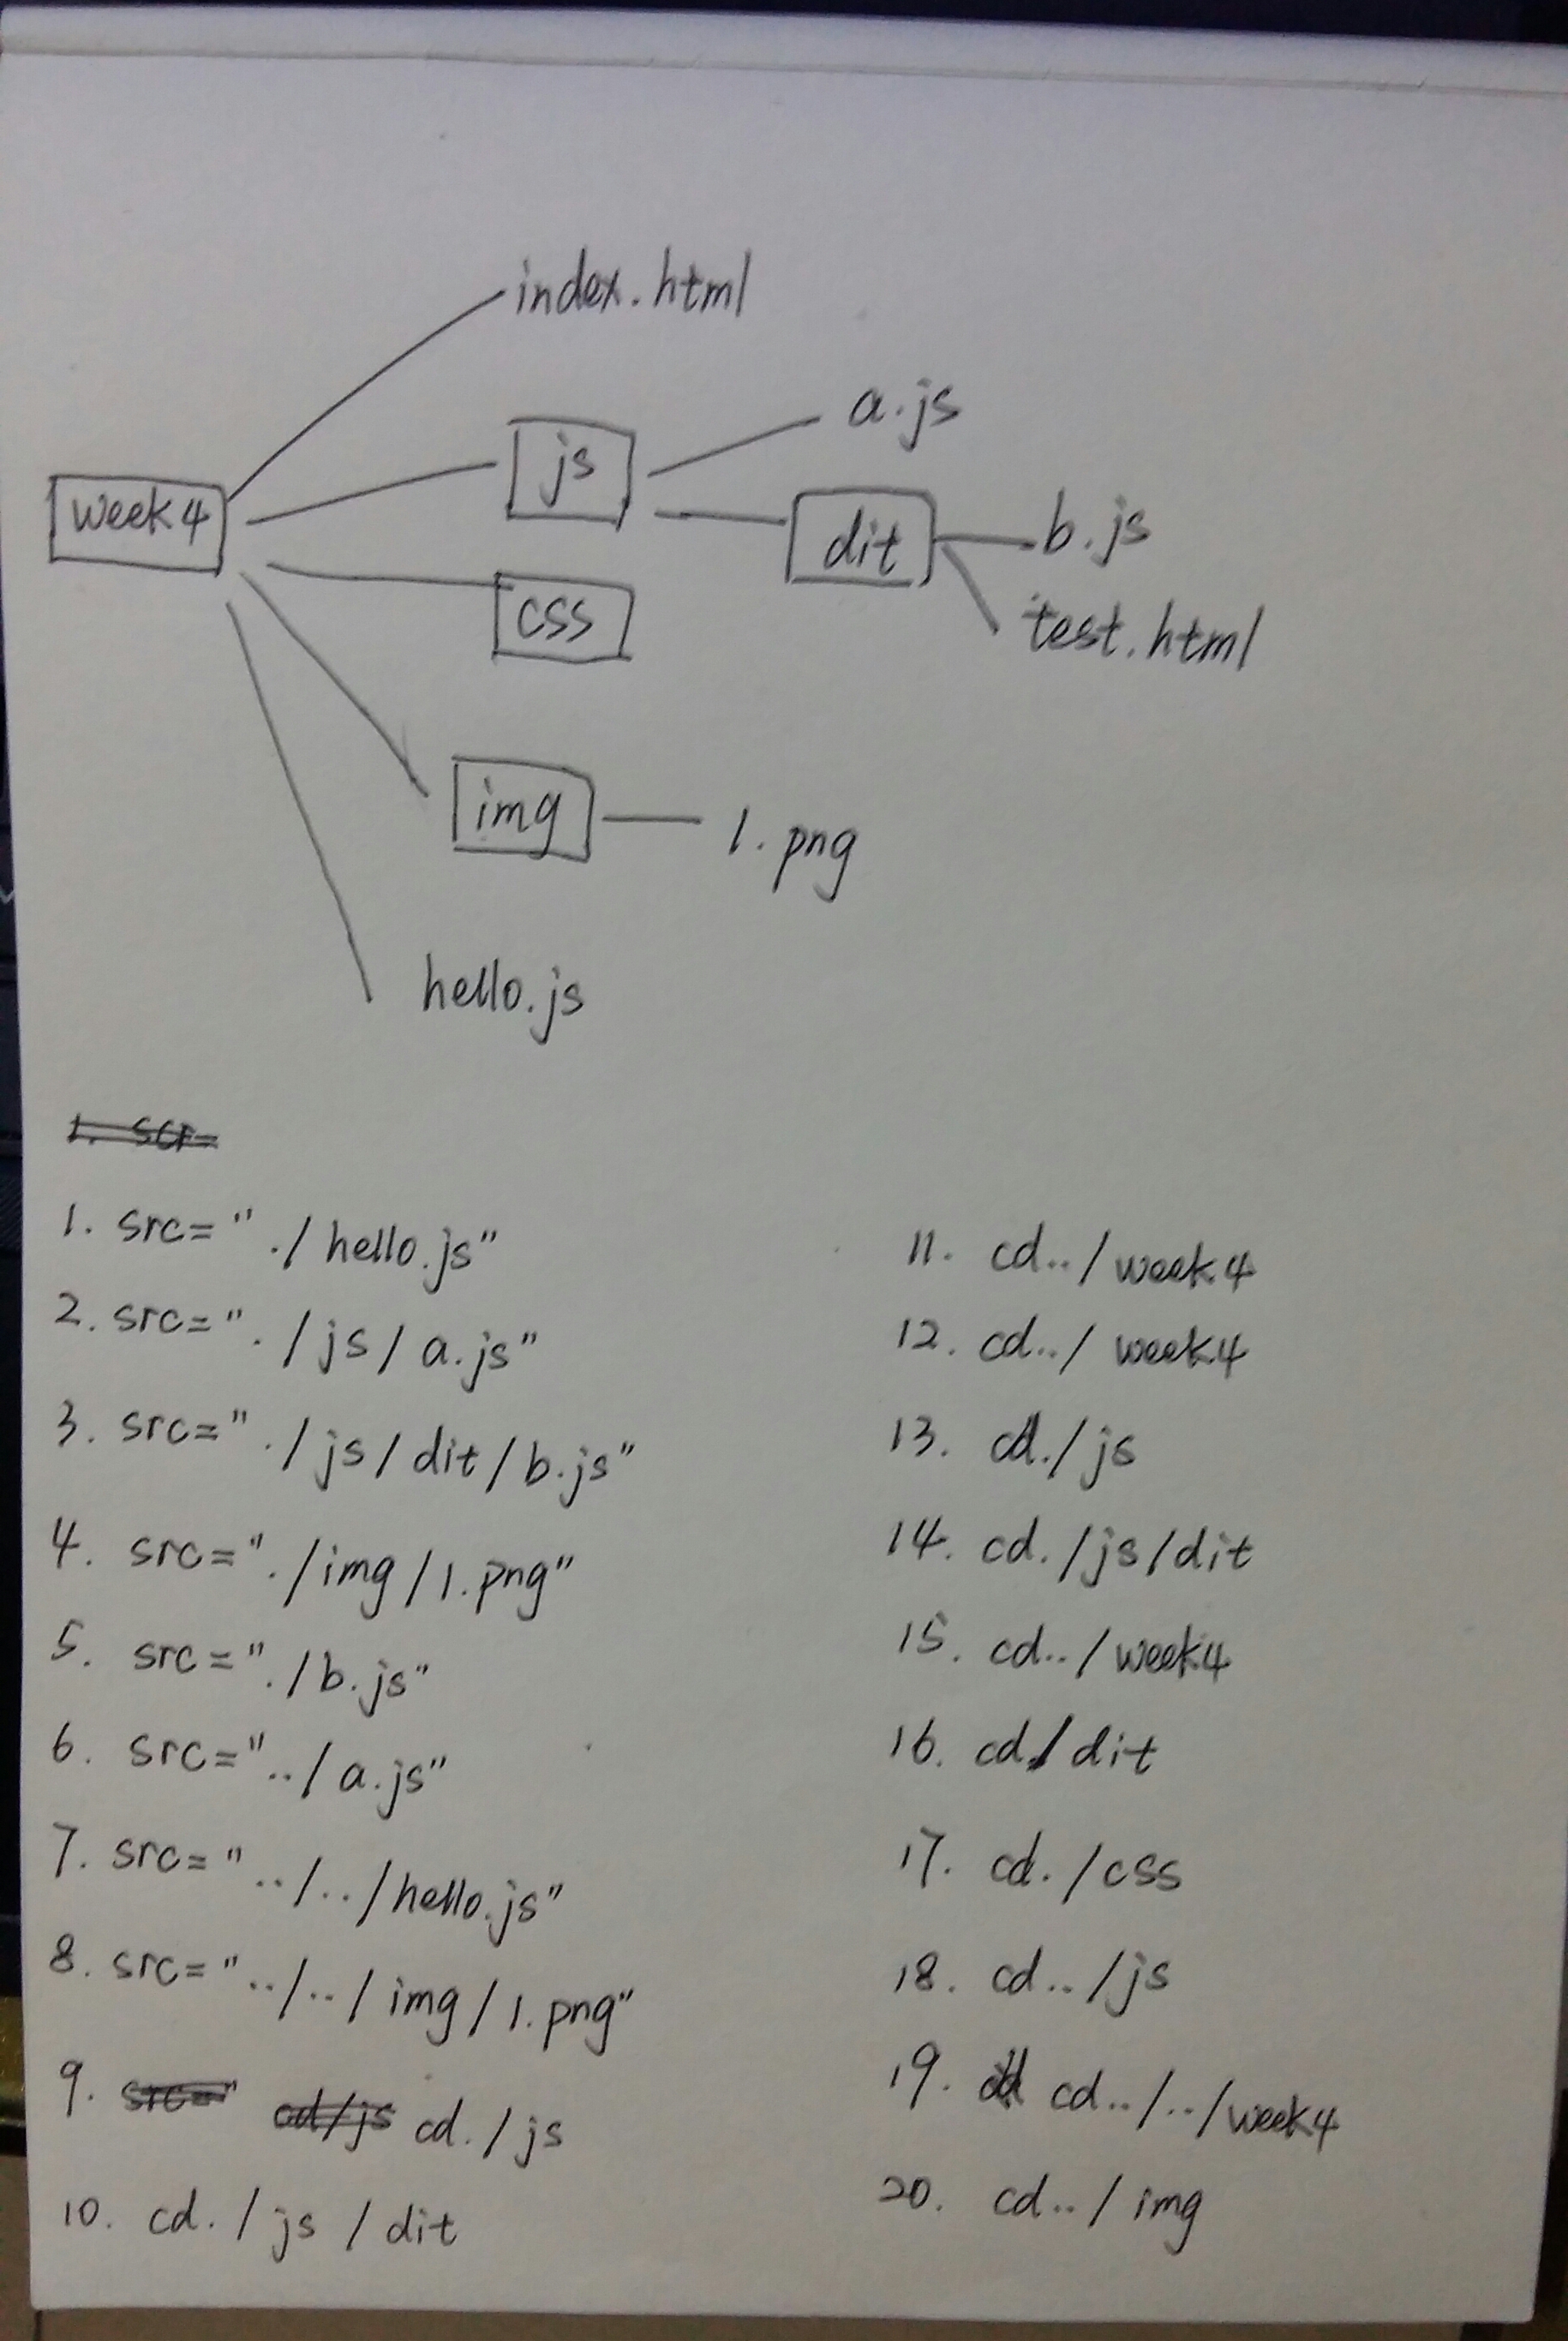 index.html
a.js
js
week4
dit
b.js
css
test.html
img
1.png
hello.js
1. scr=
1. src="./hello.js"
2. src="./js/a.js"
3. src="./js/dit/b.js"
4. src="./img/1.png"
5. src="./b.js"
6. src="../a.js"
7. src="../../hello.js"
8. src="../../img/1.png"
9. src=" cd/js cd./js
10. cd./js/dit
11. cd../week4
12. cd../week4
13. cd./js
14. cd./js/dit
15. cd../week4
16. cd./dit
17. cd./css
18. cd../js
19. cd../../week4
20. cd../img